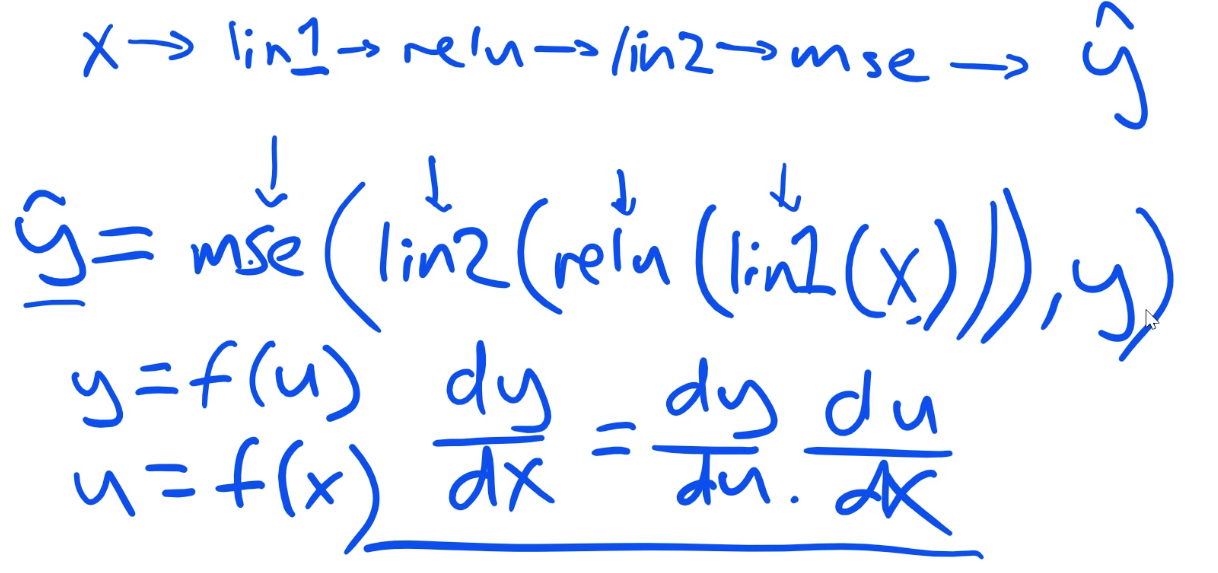 x → lin1 → relu → lin2 → mse → ŷ
ŷ = mse(lin2(relu(lin1(x))), y)
y = f(u) dy/dx = dy/du · du/dx
u = f(x)